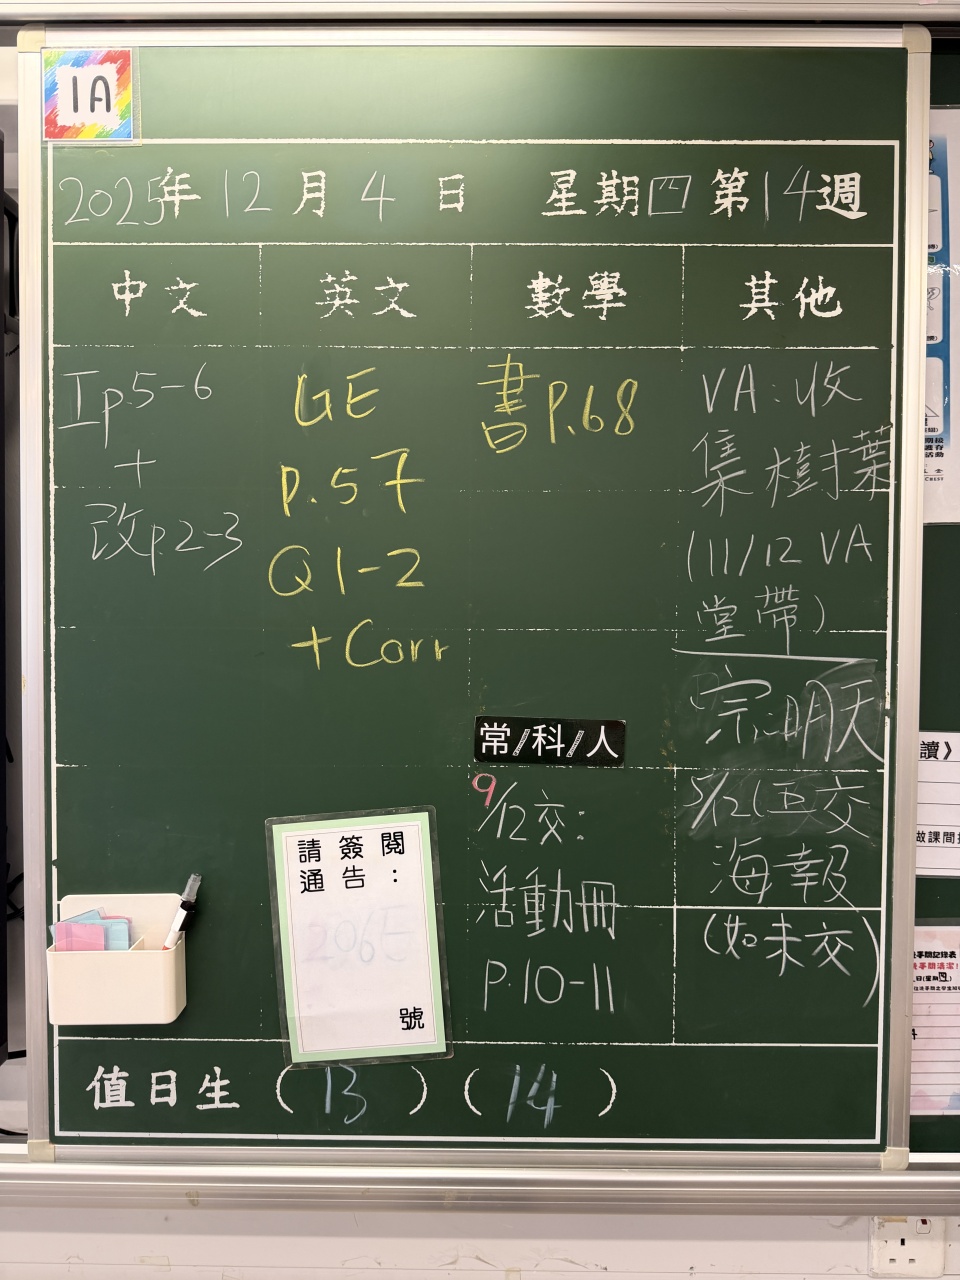 1A
2025年12月4日 星期四 第14週
中文 英文 數學 其他
Ip.5-6
+
改p.2-3
GE
P.57
Q1-2
+Corr
書P.68
常/科/人
9/12交:
活動冊
P.10-11
VA:收
集樹葉
(11/12 VA
堂帶)
宗:明天
5/12(五交
海報
(如未交)
請簽閱
通告：
2065
號
值日生 (13) (14)
讀》
做課間